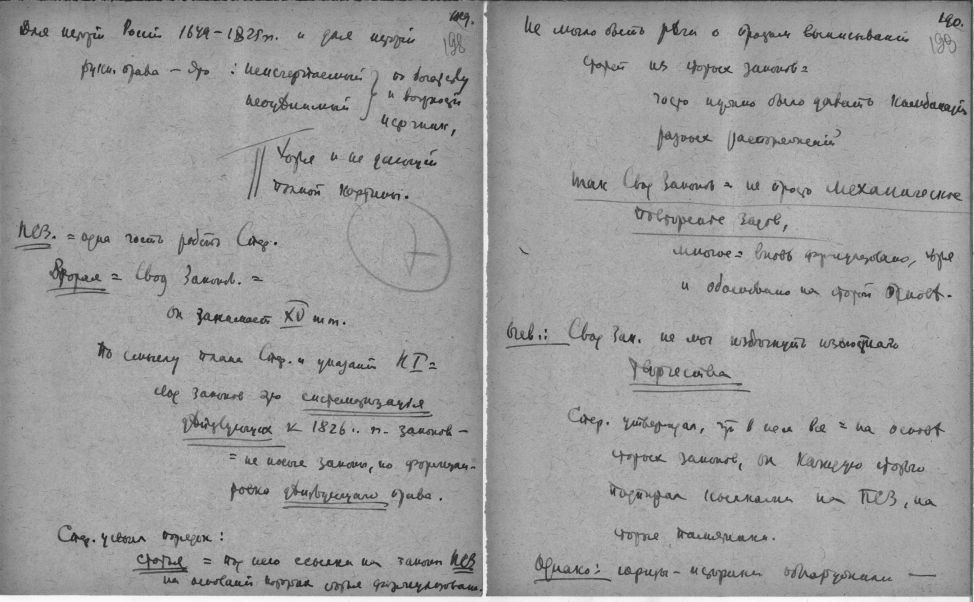 189.
198
Для истории России 1649–1825 гг. и для истории
русск. права – это: неисчерпаемый
неоценимый
по богатству
и
источник,
Хотя и не дающий
полной картины.
7
ПСЗ. = одна часть работы Спер.
Вторая = Свод Законов. =
он занимает XV тт.
По смыслу плана Спер. и указаний НI =
свод законов это систематизация
действующих к 1826 г. законов –
= не новые законы, но
действующего права.
Спер. порядок:
статья = под нею ссылка на законы ПСЗ
на основании которых статья формулирована.
190.
199
Не могло быть речи о простом выписывании
статей из старых законов =
часто нужно было давать комбинацию
разных распоряжений
Так Свод Законов = не просто механическое
повторение задов,
многое = вновь формулировано, хотя
и обосновано на старой основе.
Свод Зак. не мог избегнуть
творчества
Спер. утверждал, что в нем все = на основе
старых законов, он каждую статью
подпирал ссылками на ПСЗ, на
старые памятники.
Однако: юристы – историки обнаружили —